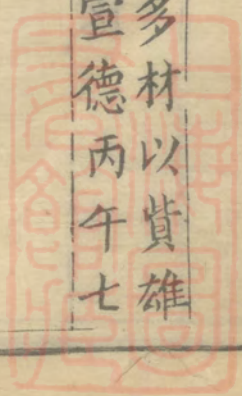 多材以貲雄
宣德丙午七